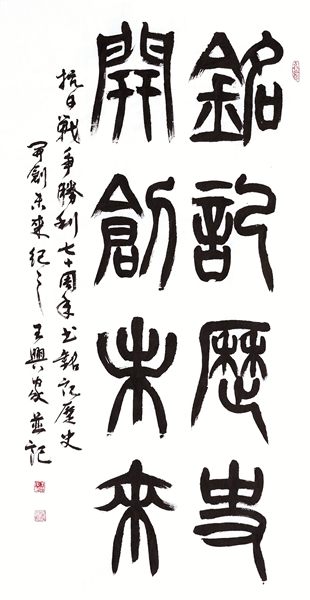 銘記歷史
開創未來
抗日戰爭勝利七十周年書銘記歷史
開創未來紀之王興家並記